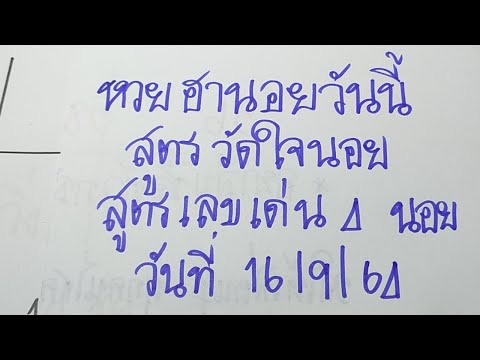 หวยฮานอยวันนี้
สูตร วัดใจนอย
สูตรเลขเด่น 4 นอย
วันที่ 16/9/64